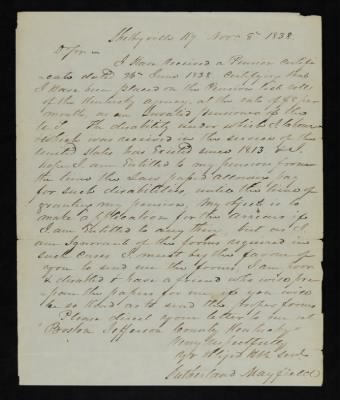 Shelbyville Ky. Nov. 8th 1838
Dr Sir
I Have received a Pension Certifi-
cate dated 26th June 1838 certifying that
I Have been placed on the Pension list roll
of the Kentucky agency, at the rate of $8 per
month, as an Invalid Pensioner of the
U.S. The disability under which I labour
& which was received in the services of the
United States Has Existed since 1813 & I
hope I am Entitled to my pension from
the time the laws passed allowing pay
for such disabilities, untill the time of
granting my pension, My object is to
make application for the arrears if
I am Entitled to any there, but as I
am Ignorant of the forms required in
such cases I must beg the favour of
you to send me the forms, I am poor
& disabled & have a friend who will pre-
pare the papers for me if you will
be so kind as to send the proper forms
Please direct your letter to me at
Boston Jefferson County Kentucky
Very Respectfully
yr obt Servt
Sutherland Mayfield